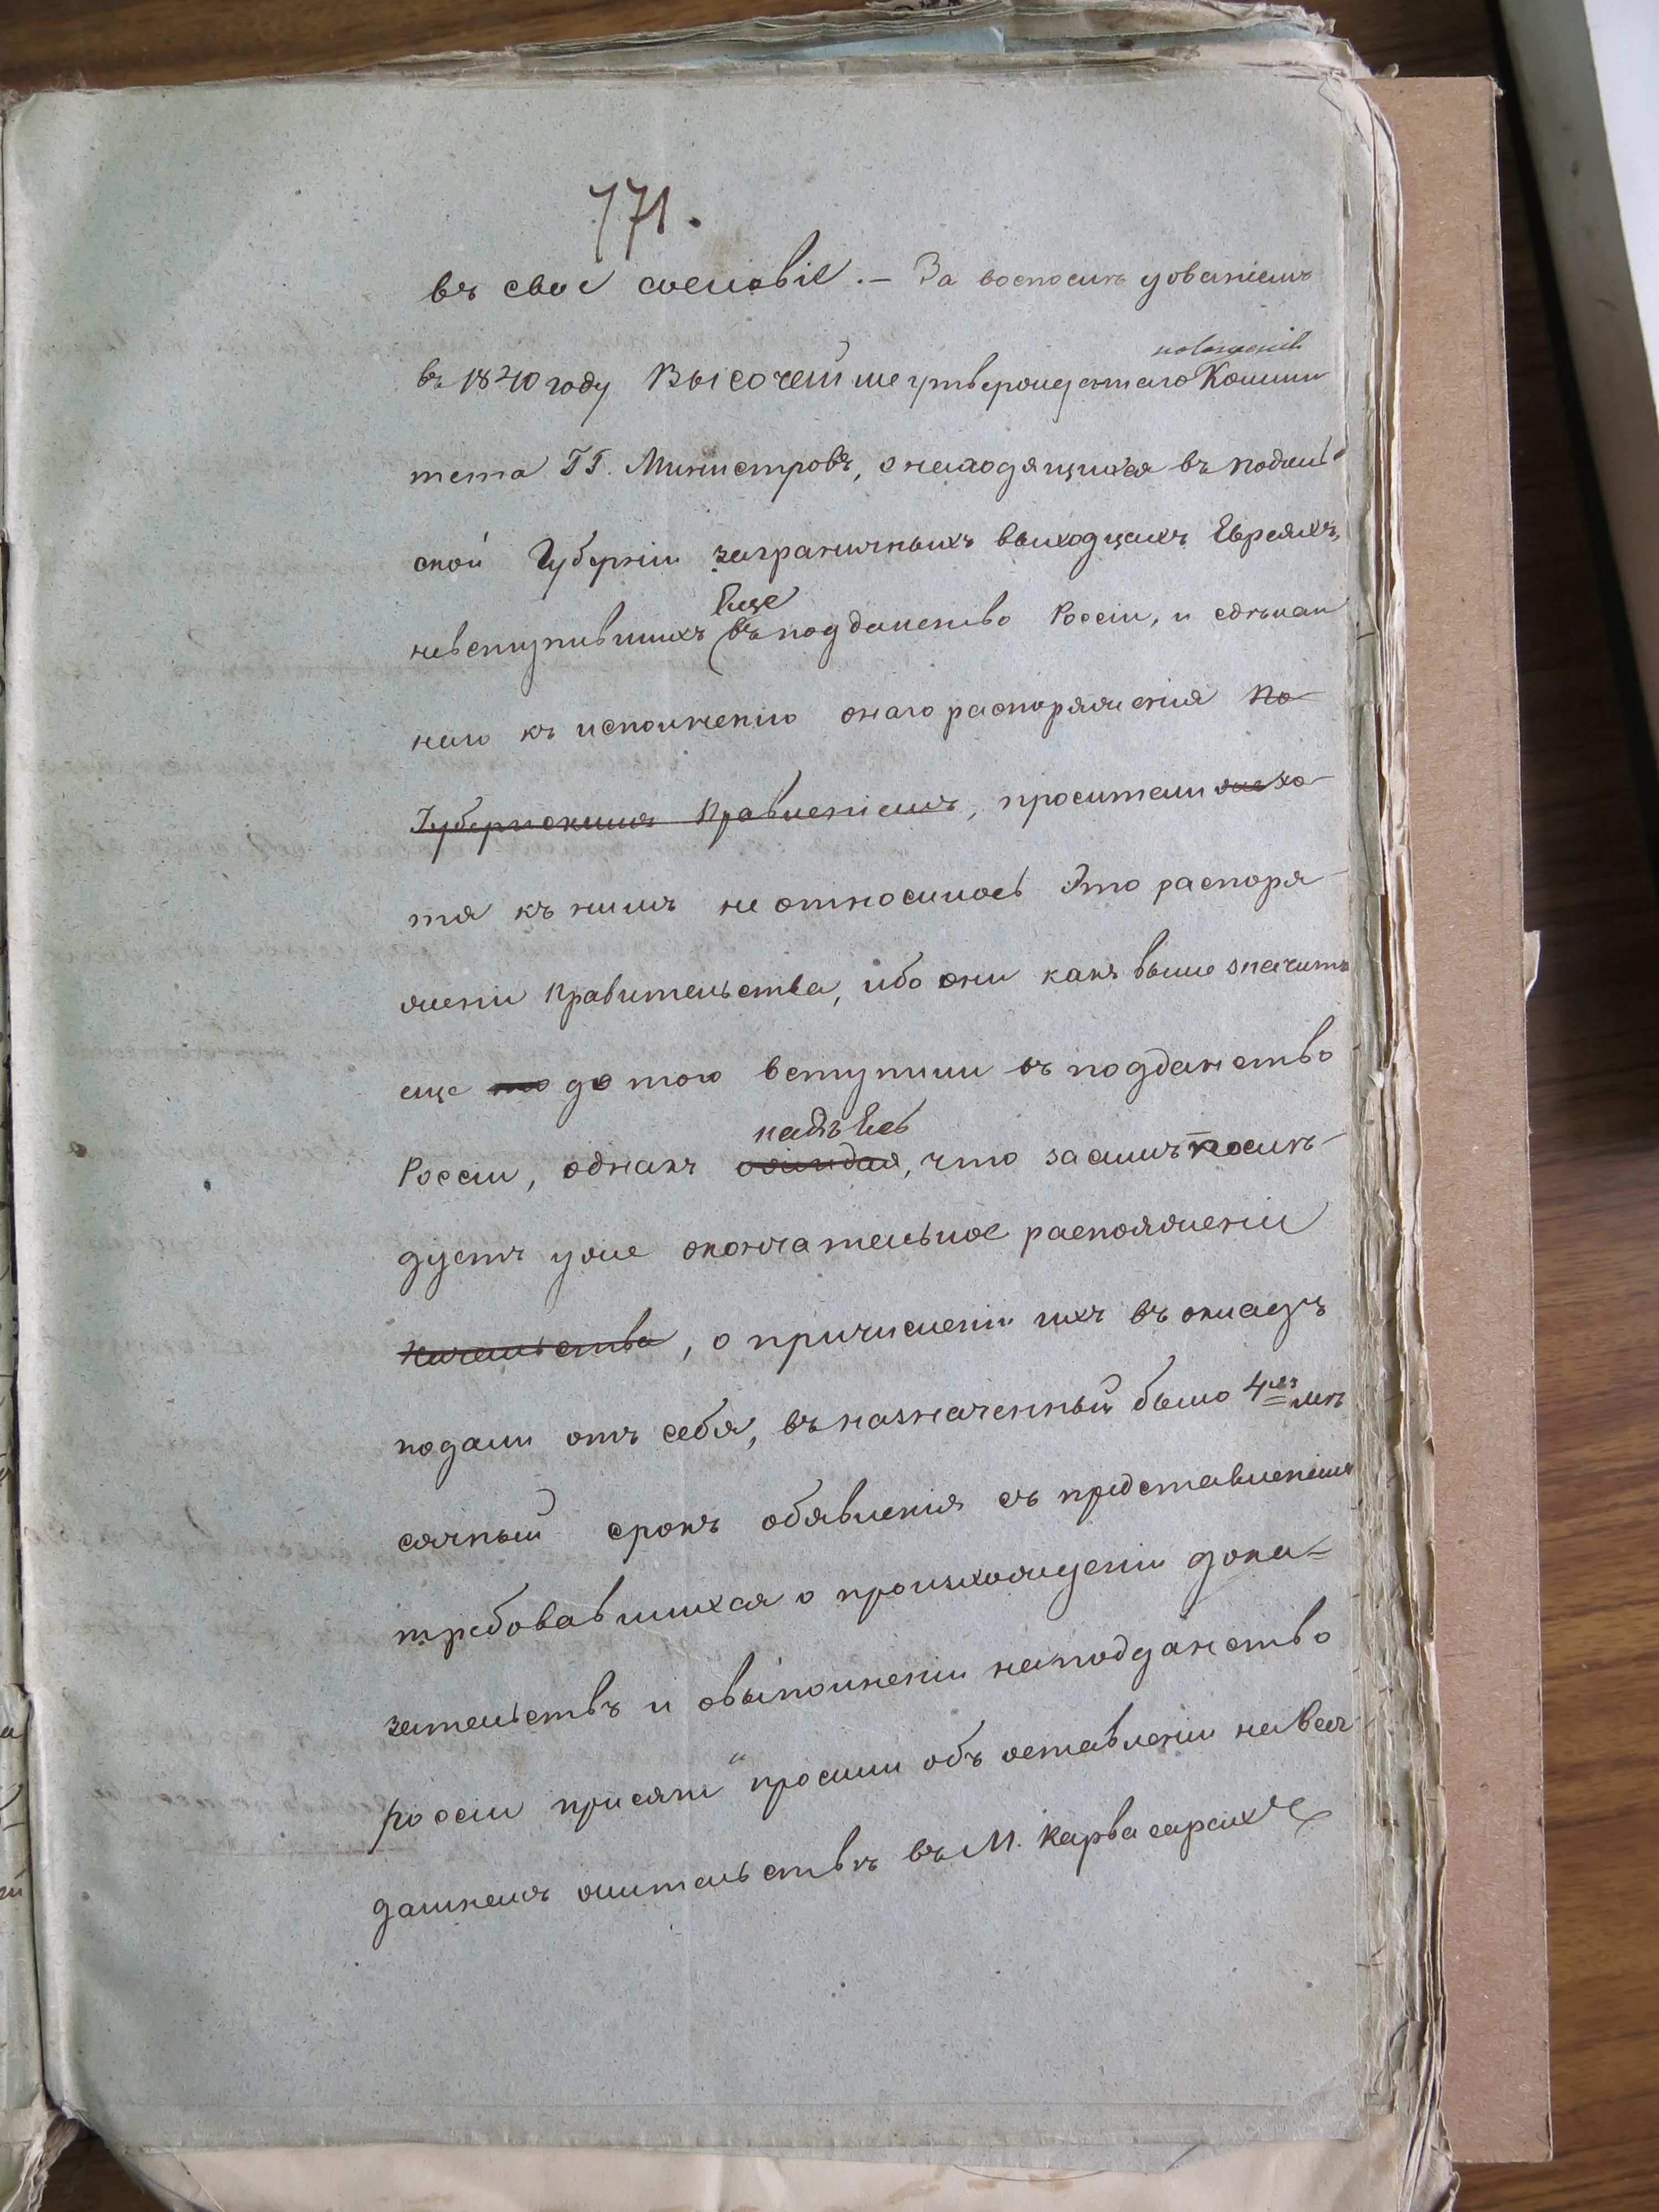 771.
въ свое сословіе. — За воспослѣдованіемъ
положенія
въ 1840 году Высочайше утвержденнаго Комми
тета ГГ. Министровъ, о находящихся въ Подоль
ской Губерніи заграничныхъ выходцахъ Евреяхъ,
еще
невступившихъ въ подданство Россіи, и сдѣлан
наго къ исполненію онаго распоряженія по
Губернскимъ Правленіемъ, просители же хо
тя къ нимъ не относилось Это распоря
жени правительства, ибо они какъ выше значитъ
еще то до того вступили въ подданство
надѣясь
Россіи, однакъ ожидая, что за симъ послѣ-
дуетъ уже окончательное распояжени
начальства, о причислени ихъ въ окладъ
подали отъ себя, въ назначенный было 4хъ мѣ
сячный срокъ объявленія съ представленіемъ
требовавшихся о происхождени дока-
зательствъ и о выполнени на подданство
россіи присяги просили объ оставлени на все
дашнемъ жительствѣ въ М. Карвасарахъ